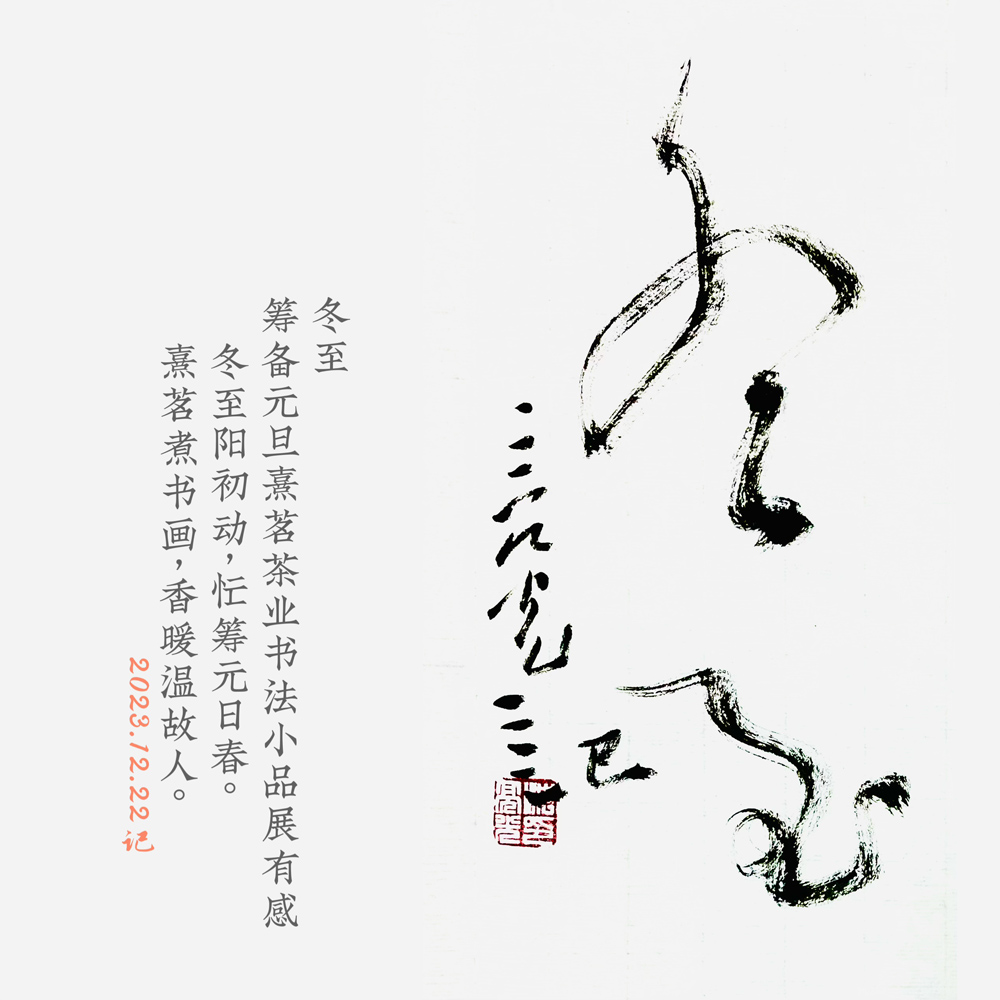 冬至
冬至
筹备元旦熹茗茶业书法小品展有感
冬至阳初动，忙筹元日春。
熹茗煮书画，香暖温故人。
2023.12.22 记